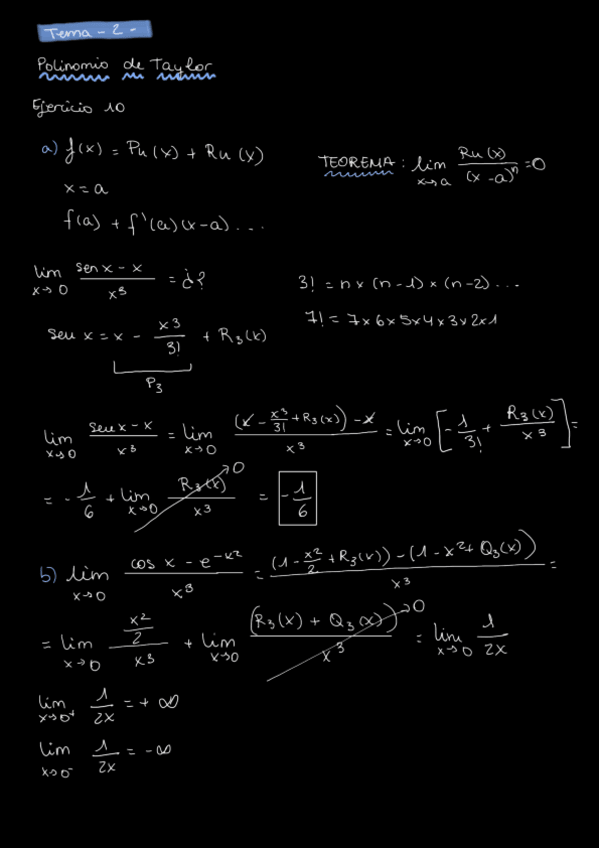 Tema - 2 -
Polinomio de Taylor
Ejercicio 10
a) f(x) = Pn(x) + Rn(x)
TEOREMA: lim x→a Rn(x)/(x-a)^n = 0
x = a
f(a) + f'(a)(x-a)...
lim x→0 (sen x - x)/x^3 = ¿?
3! = n × (n-1) × (n-2)...
sen x = x - x^3/3! + R3(x)
7! = 7×6×5×4×3×2×1
P3
lim x→0 (sen x - x)/x^3 = lim x→0 ((x - x^3/3! + R3(x)) - x)/x^3 = lim x→0 [-1/3! + R3(x)/x^3] =
= -1/6 + lim x→0 R3(x)/x^3 → 0 = -1/6
b) lim x→0 (cos x - e^-x^2)/x^3 = ((1 - x^2/2 + R3(x)) - (1 - x^2 + Q3(x)))/x^3 =
= lim x→0 (x^2/2)/x^3 + lim x→0 (R3(x) + Q3(x))/x^3 → 0 = lim x→0 1/2x
lim x→0+ 1/2x = + ∞
lim x→0- 1/2x = -∞